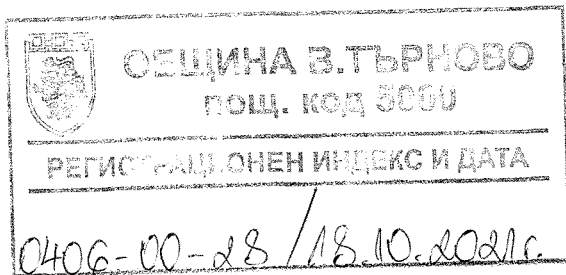 ОБЩИНА В.ТЪРНОВО
пощ. код 5000
РЕГИСТРАЦИОНЕН ИНДЕКС И ДАТА
0406-00-28 / 18.10.2021г.